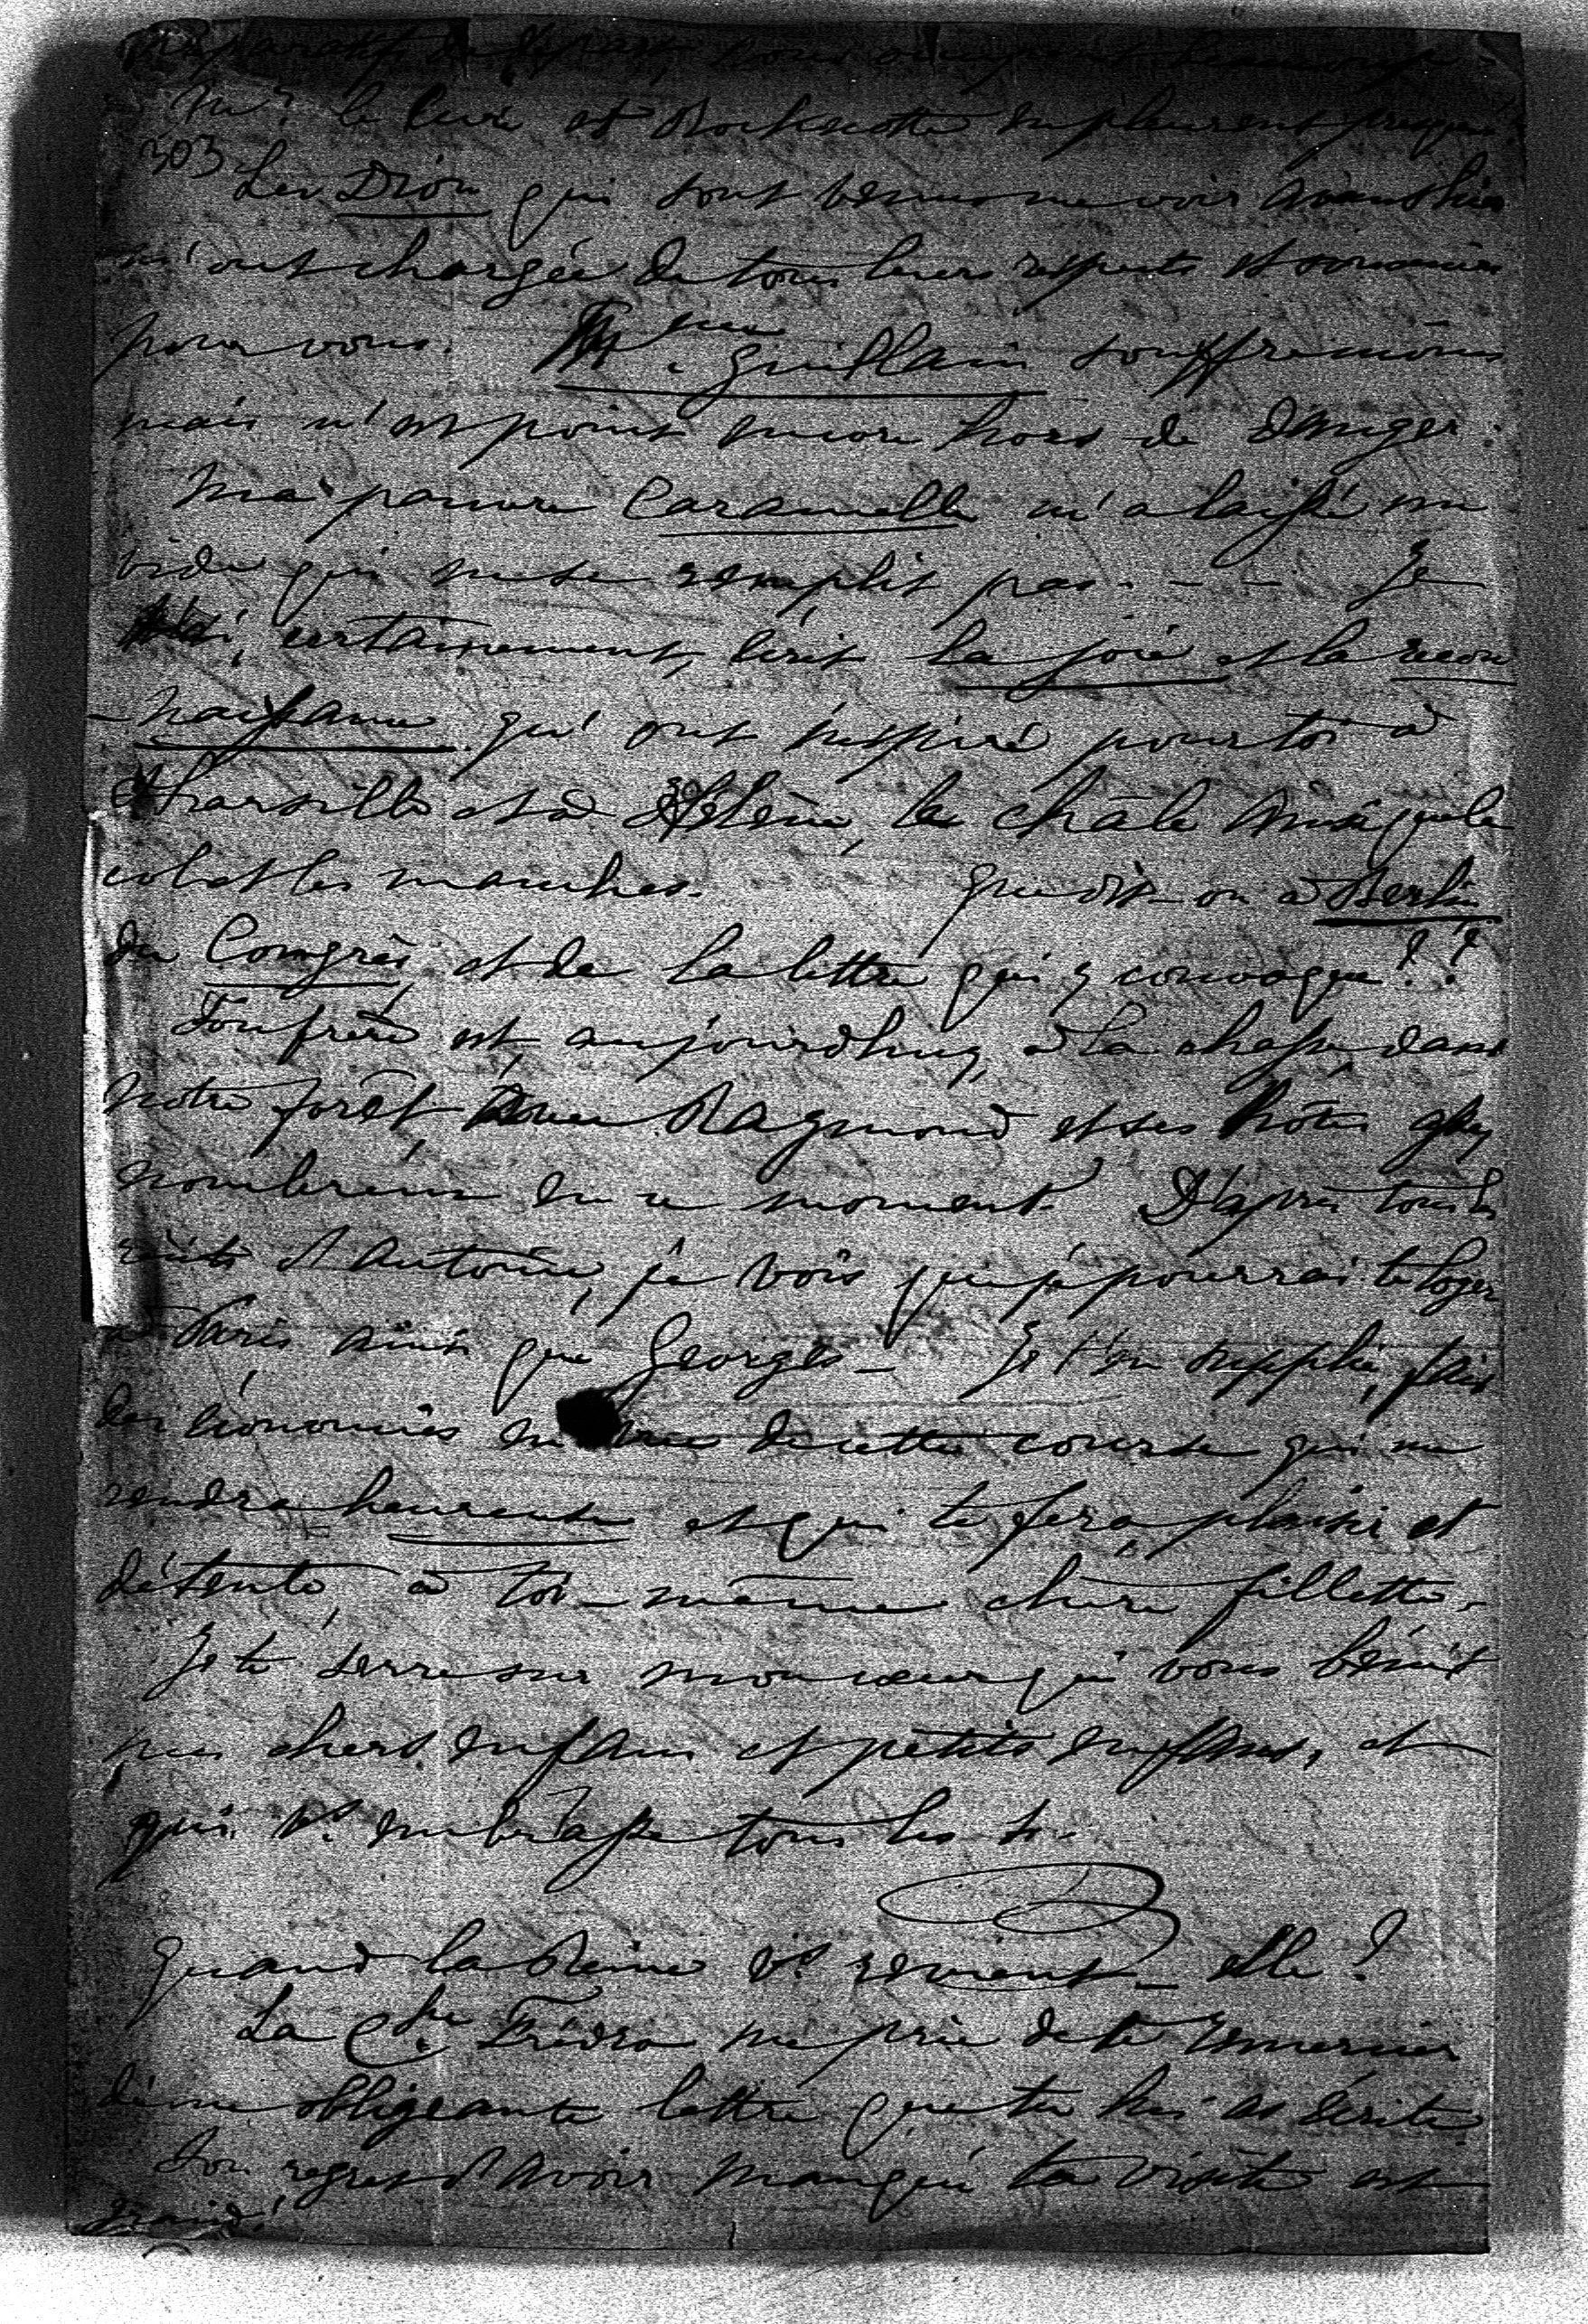 préparatifs de départ, nous occupent beaucoup.
Mr. le Curé et en pleurent presque!
303
Les Dion qui sont venus me voir avant hier
m'ont chargée de tous leurs respects et souvenirs
pour vous. Mme. Guillain souffre moins
mais n'est point encore hors de danger.
Ma pauvre Caramelle m'a laissé un
vide qui ne se remplit pas. - - - Je
t'ai, certainement, écrit la joie et la recon
-naissance qu'ont inspiré pour toi à
Tharsille et à Hélène, le châle ainsi que le
col et les manches. Que dit-on à Berlin
du Congrès et de la lettre qui y convoque??
Ton frère est aujourd'huy, à la chasse dans
notre forêt avec Raymond et ses hôtes
nombreux en ce moment. D'après tous les
récits d'Antoine, je vois que je pourrai te loger
à Paris ainsi que Georges - Je t'en supplie, fais
des économies en vue de cette course qui me
rendra heureuse et qui te fera plaisir et
détente, à toi-même chère fillette.
Je te serre sur mon coeur qui vous bénit
mes chers enfans et petits enfans, et
qui vs. embrasse tous les
Quand la Reine vs. revient-elle?
La Ctsse. Frédro me prie de te remercier
de une obligeante lettre que tu lui as écrite.
Son regret d'avoir manqué ta visite est
grand!